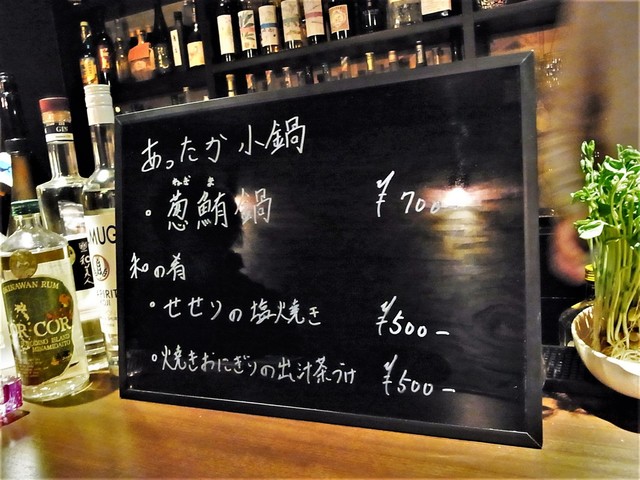 あったか小鍋
ねぎ ま
・葱鮪鍋 ¥700
和の肴
・せせりの塩焼き ¥500−
・焼きおにぎりの出汁茶づけ ¥500−
GIN
MUG
OKINAWAN RUM
COR COR